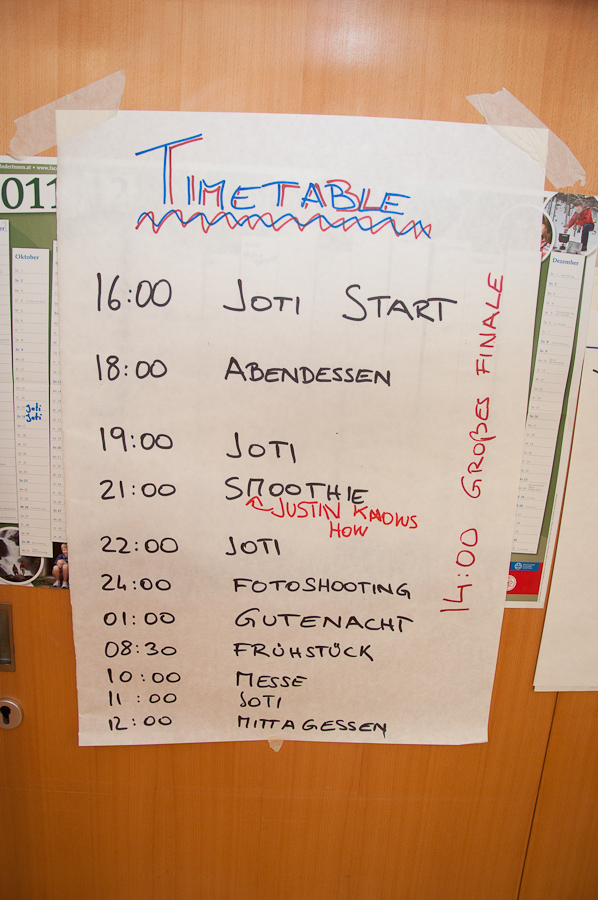 TIMETABLE
16:00 JOTI START
18:00 ABENDESSEN
19:00 JOTI
21:00 SMOOTHIE
JUSTIN KNOWS
HOW
22:00 JOTI
24:00 FOTOSHOOTING
01:00 GUTENACHT
08:30 FRÜHSTÜCK
10:00 MESSE
11:00 JOTI
12:00 MITTAGESSEN
14:00 GROßES FINALE
011
Oktober
joti
joti
Dezember